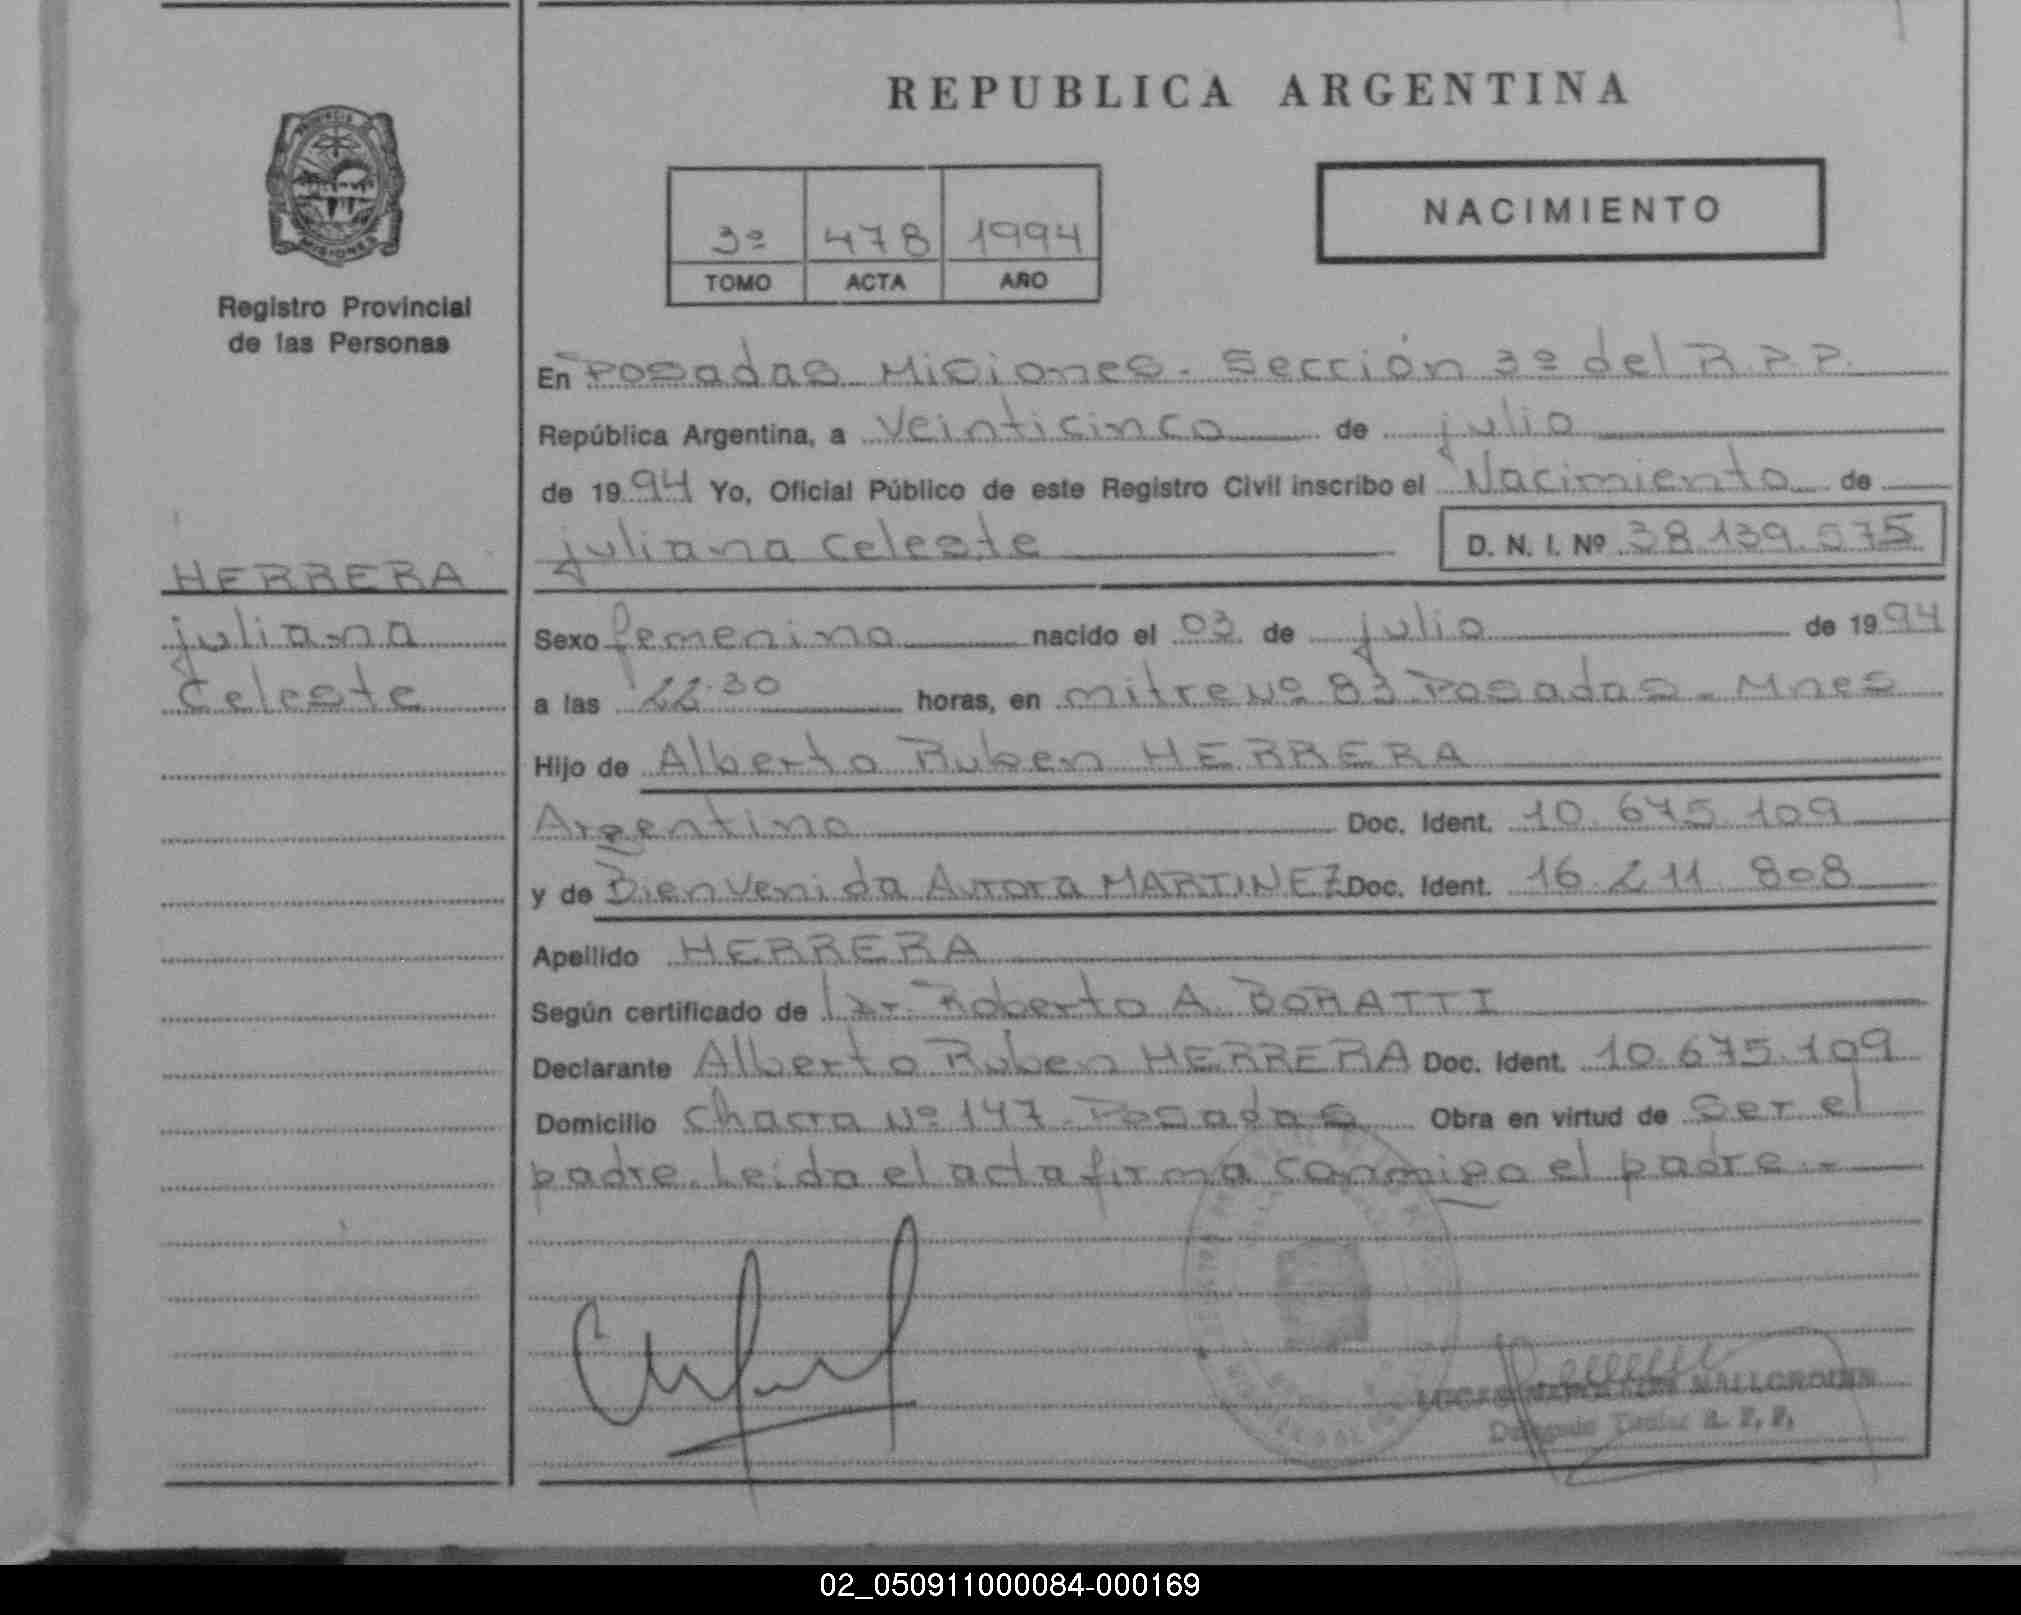 REPUBLICA ARGENTINA
PROVINCIA DE
MISIONES
Registro Provincial
de las Personas
NACIMIENTO
3º 478 1994
TOMO ACTA AÑO
En Posadas Misiones. Sección 3º del R.P.P.
República Argentina, a Veinticinco de julio
de 1994 Yo, Oficial Público de este Registro Civil inscribo el Nacimiento de
juliana Celeste D. N. I. Nº 38.139.575
HERRERA
juliana
Celeste
Sexo femenino nacido el 03 de julio de 1994
a las 22.30 horas, en mitre Nº 83 Posadas - Mnes
Hijo de Alberto Ruben HERRERA
Argentino Doc. Ident. 10.675.109
y de Bienvenida Aurora MARTINEZ Doc. Ident. 16.211.808
Apellido HERRERA
Según certificado de Dr. Roberto A. BORATTI
Declarante Alberto Ruben HERRERA Doc. Ident. 10.675.109
Domicilio Chacra Nº 147 - Posadas Obra en virtud de Ser el
padre. Leída el acta firma conmigo el padre.-
R. P. P.
02_050911000084-000169